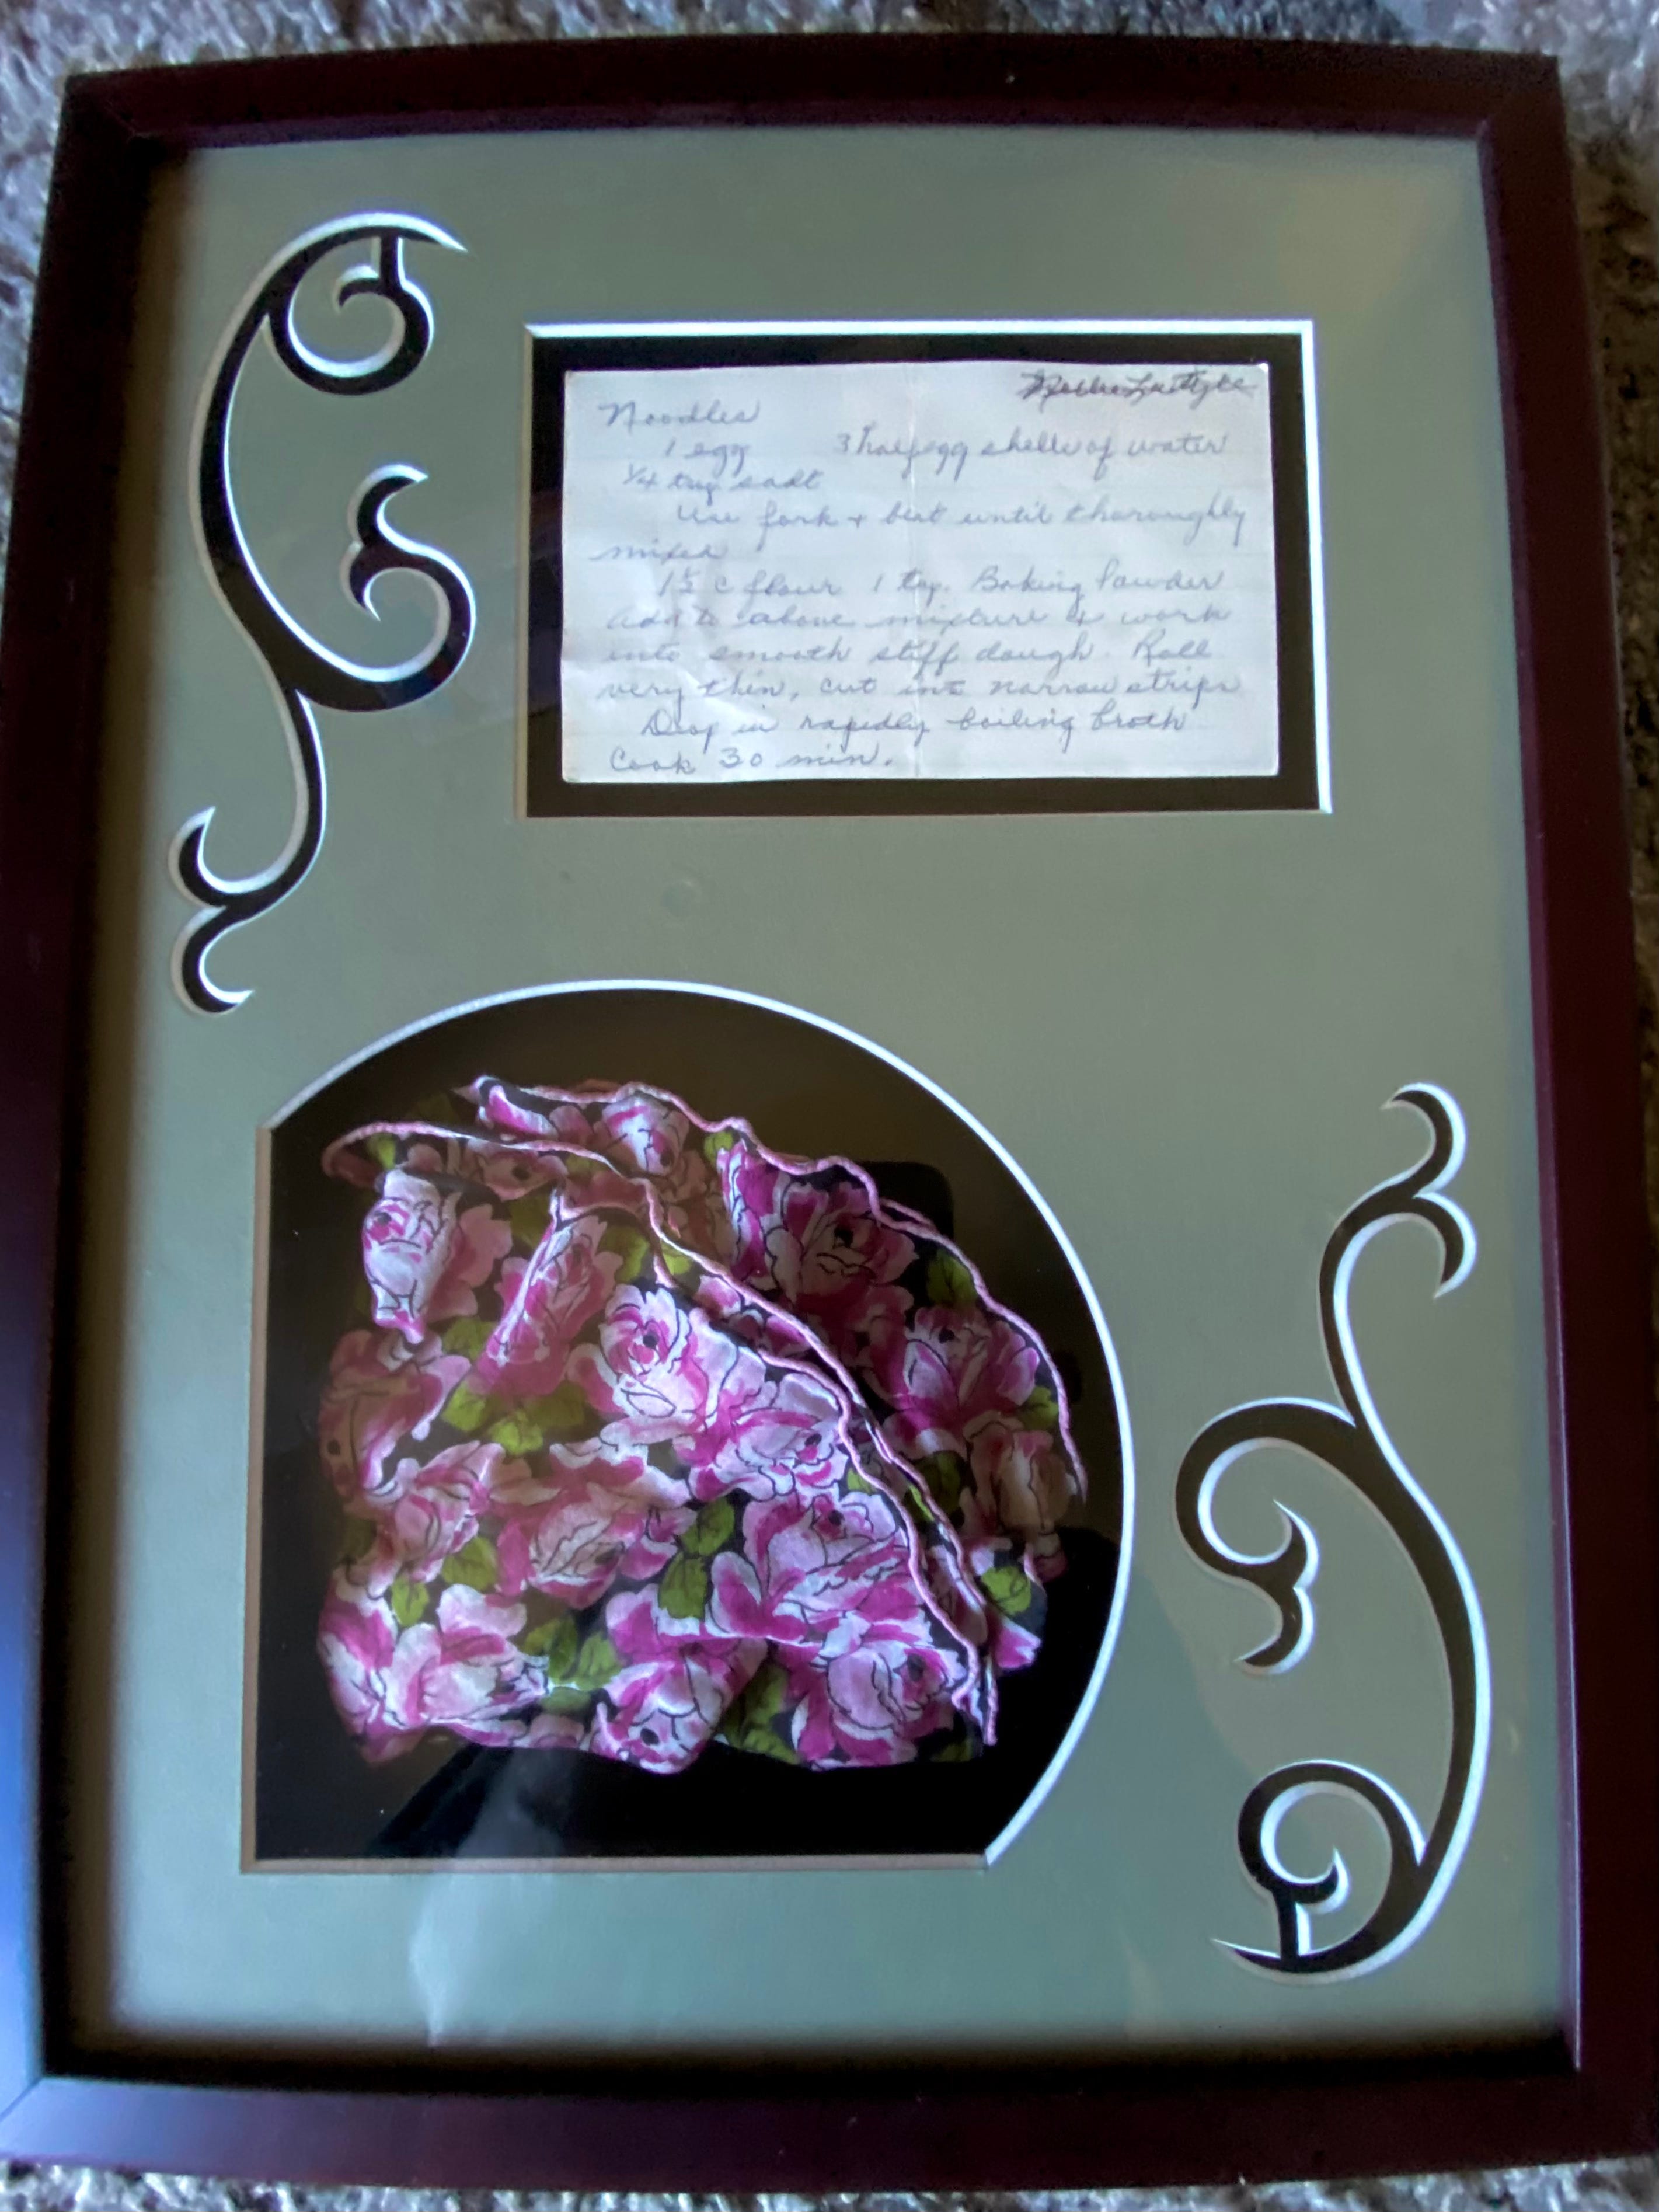 Noodles
1 egg 3 half egg shells of water
1/4 tsp salt
Use fork + beat until thoroughly
mixed
1 1/2 c flour 1 tsp. Baking Powder
add to above mixture & work
into smooth stiff dough. Roll
very thin, cut into narrow strips
Drop in rapidly boiling broth
Cook 30 min.